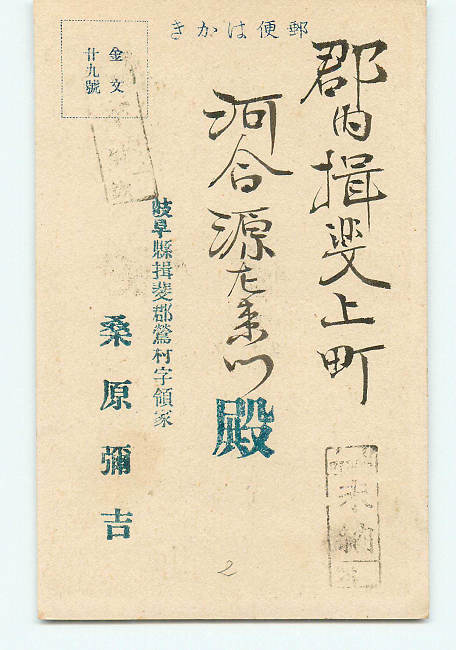 郵便はかき
金文
廿九號
郡内揖斐上町
河合源左衛門殿
岐阜縣揖斐郡鶯村字領家
桑原彌吉
未納
2